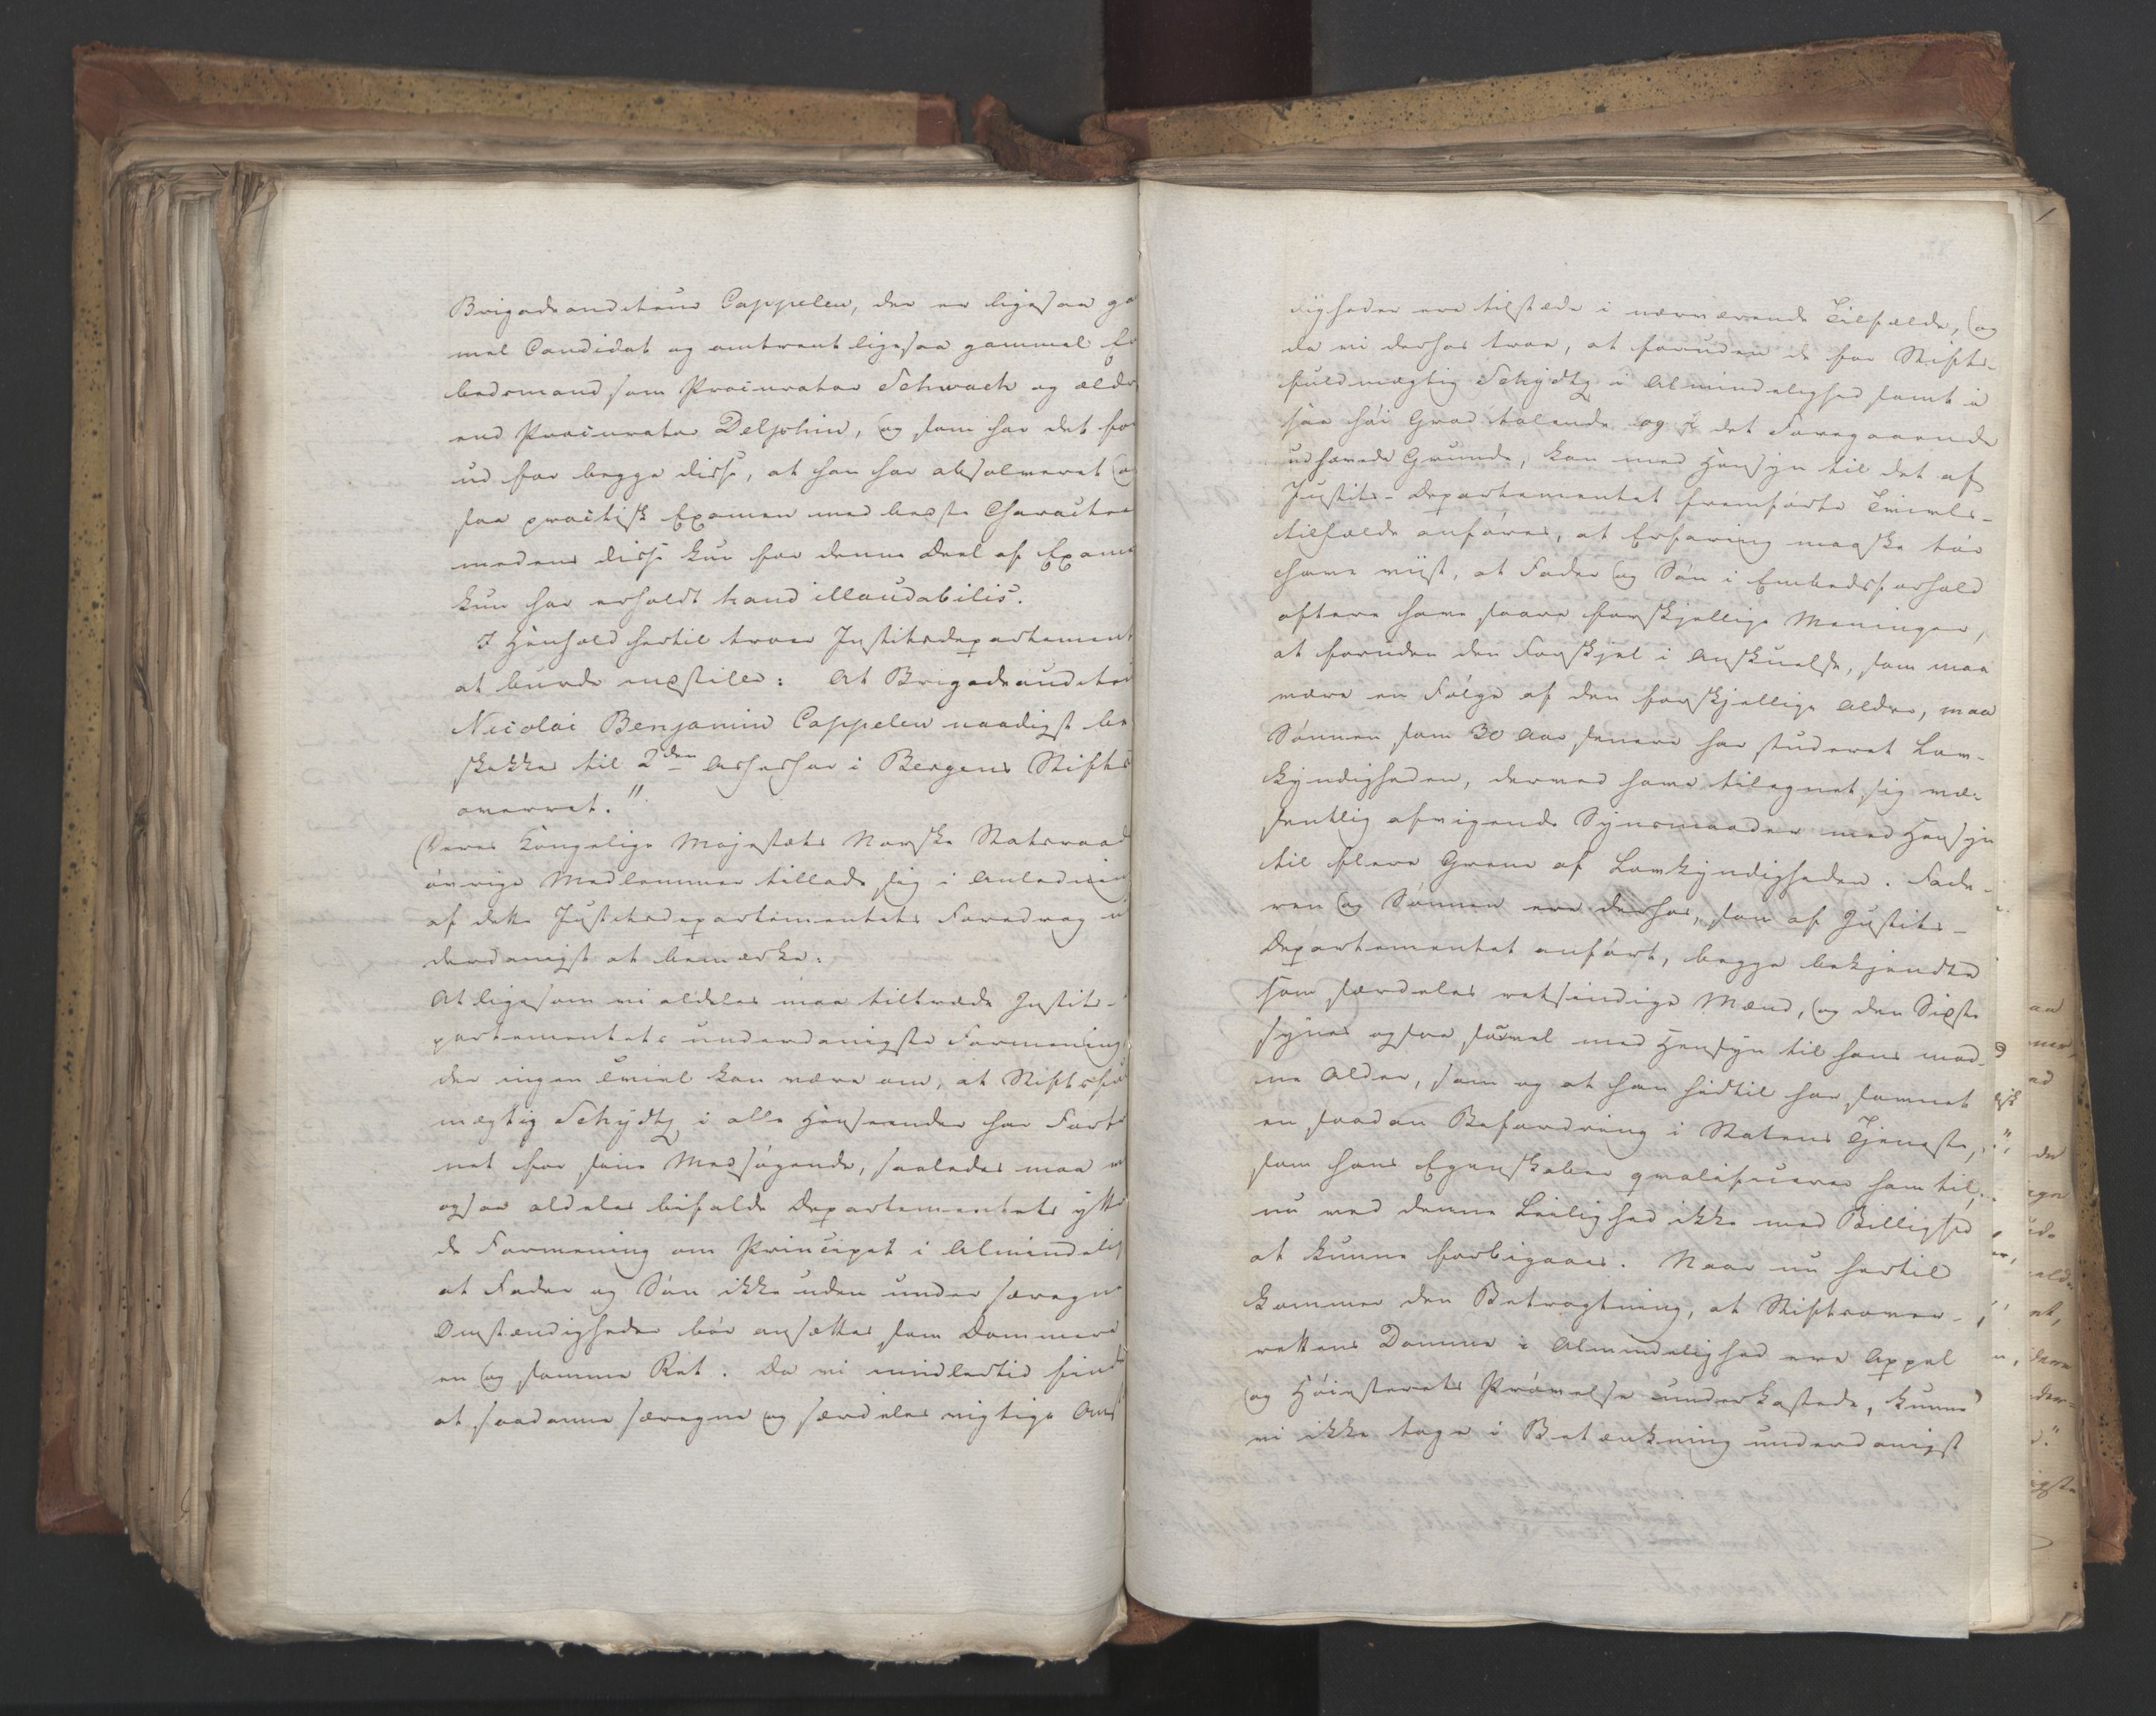 Brigadeauditeur Cappelen, der er ligesaa ga
mel Candidat og omtrent ligesaa gammel Em
bedsmand som Procurator Schwach og ældre
end Procurator Delphin, og som har det for
ud for begge disse, at han har absolveret og
saa practisk Examen med bedste Characteer
medens disse kun for denne Deel af Exame
kun har erholdt haud illaudabilis.
I Henhold hertil troer Justitsdepartement
at burde indstille: At Brigadeauditeu
Nicolai Benjamin Cappelen naadigst be
skikkes til 2den Assessor i Bergens Stifts
overret."
Deres Kongelige Majestæts Norske Statsraad
øvrige Medlemmer tillade sig i Anlednin
af dette Justitsdepartementets Foredrag u
derdanigst at bemærke:
At ligesom vi aldeles maa tiltræde Justits-
partementets underdanigste Formening
der ingen Tvivl kan være om, at Stiftsfu
mægtig Schydtz i alle Henseender har Forte
net for sine Medsøgende, saaledes maa vi
ogsaa aldeles bifalde Departementets yttre
de Formening om Princip̲et i Almindelig
at Fader og Søn ikke uden under særegne
Omstændigheder bør ansættes som Dommere
en og samme Ret. Da vi imidlertid finde
at saadanne særegne og særdeles vigtige Oms
digheder ere tilstæde i nærværende Tilfælde, og
da vi derhos troe, at foruden de for Stifts-
fuldmægtig Schydtz i Almindelighed samt i
saa høi Grad talende og i det Foregaaende
udhævede Grunde, kan med Hensyn til det af
Justits-Departementet fremførte Tvivls-
tilfælde anføres, at Erfaring maaske tør
have viist, at Fader og Søn i Embedsforhold
oftere have saare forskjellige Meninger,
at foruden den Forskjel i Anskuelse, som maa
være en Følge af den forskjellige Alder, maa
Sønnen som 30 Aar senere har studeret Lov-
kyndigheden, derved have tilegnet sig væ-
sentlig afvigende Synsmaader med Hensyn
til flere Grene af Lovkyndigheden. Fade-
ren og Sønnen ere derhos, som af Justits-
Departementet anført, begge bekjendte
som særdeles retsindige Mænd, og den Sidste
synes ogsaa saavel med Hensyn til hans mod-
ne Alder, som og at han hidtil har savnet
en saadan Befordring i Statens Tjeneste,
som hans Egenskaber qvalificerer ham til,
nu ved denne Leilighed ikke med Billighed
at kunne forbigaaes. Naar nu hertil
kommer den Betragtning, at Stiftsover-
rettens Domme i Almindelighed ere Appel
og Høiesterets Prøvelse underkastede, kunne
vi ikke tage i Betænkning underdanigst